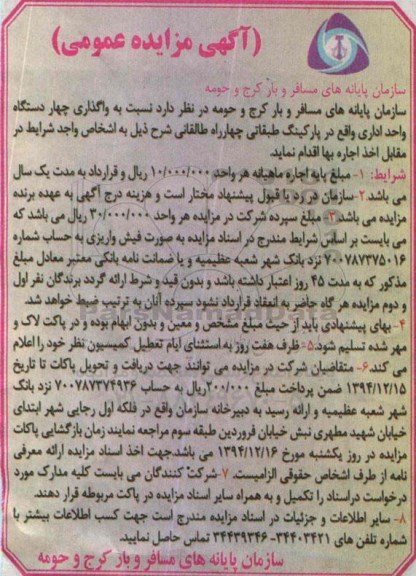 (آگهی مزایده عمومی)
سازمان پایانه های مسافر و بار کرج و حومه
سازمان پایانه های مسافر و بار کرج و حومه در نظر دارد نسبت به واگذاری چهار دستگاه
واحد اداری واقع در پارکینگ طبقاتی چهارراه طالقانی شرح ذیل به اشخاص واجد شرایط در
مقابل اخذ اجاره بها اقدام نماید.
شرایط: ۱- مبلغ پایه اجاره ماهیانه هر واحد ۱۰/۰۰۰/۰۰۰ ریال و قرارداد به مدت یک سال
می باشد.۲-سازمان در رد یا قبول پیشنهاد مختار است و هزینه درج آگهی به عهده برنده
مزایده می باشد.۳- مبلغ سپرده شرکت در مزایده هر واحد ۳۰/۰۰۰/۰۰۰ ریال می باشد که
می بایست بر اساس شرایط مندرج در اسناد مزایده به صورت فیش واریزی به حساب شماره
۷۰۰۷۸۷۳۷۵۰۱۶ نزد بانک شهر شعبه عظیمیه و یا ضمانت نامه بانکی معتبر معادل مبلغ
مذکور که به مدت ۴۵ روز اعتبار داشته باشد و بدون قید و شرط ارائه گردد برندگان نفر اول
و دوم مزایده هر گاه حاضر به انعقاد قرارداد نشود سپرده آنان به ترتیب ضبط خواهد شد.
۴- بهای پیشنهادی باید از حیث مبلغ مشخص و معین و بدون ابهام بوده و در پاکت لاک و
مهر شده تسلیم شود.۵- ظرف هفت روز به استثنای ایام تعطیل کمیسیون نظر خود را اعلام
می کند.۶- متقاضیان شرکت در مزایده می توانند جهت دریافت و تحویل پاکات تا تاریخ
۱۳۹۴/۱۲/۱۵ ضمن پرداخت مبلغ ۲۰۰/۰۰۰ریال به حساب ۷۰۰۷۸۷۳۷۴۹۳۶ نزد بانک
شهر شعبه عظیمیه و ارائه رسید به دبیرخانه سازمان واقع در فلکه اول رجایی شهر ابتدای
خیابان شهید مطهری نبش خیابان فروردین طبقه سوم مراجعه نمایند زمان بازگشایی پاکات
مزایده در روز یکشنبه مورخ ۱۳۹۴/۱۲/۱۶ می باشد.جهت اخذ اسناد مزایده ارائه معرفی
نامه از طرف اشخاص حقوقی الزامیست. ۷-شرکت کنندگان می بایست کلیه مدارک مورد
درخواست دراسناد را تکمیل و به همراه سایر اسناد مزایده در پاکت مربوطه قرار دهند.
۸- سایر اطلاعات و جزئیات در اسناد مزایده مندرج است جهت کسب اطلاعات بیشتر با
شماره تلفن های ۳۴۴۰۳۴۲۱- ۳۴۴۳۹۳۴۶ تماس حاصل نمایید.
سازمان پایانه های مسافر و بار کرج و حومه